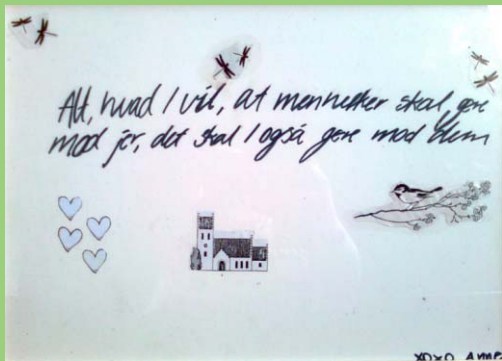 Alt, hvad I vil, at mennesker skal gøre
mod jer, det skal I også gøre mod dem
XOXO Anne